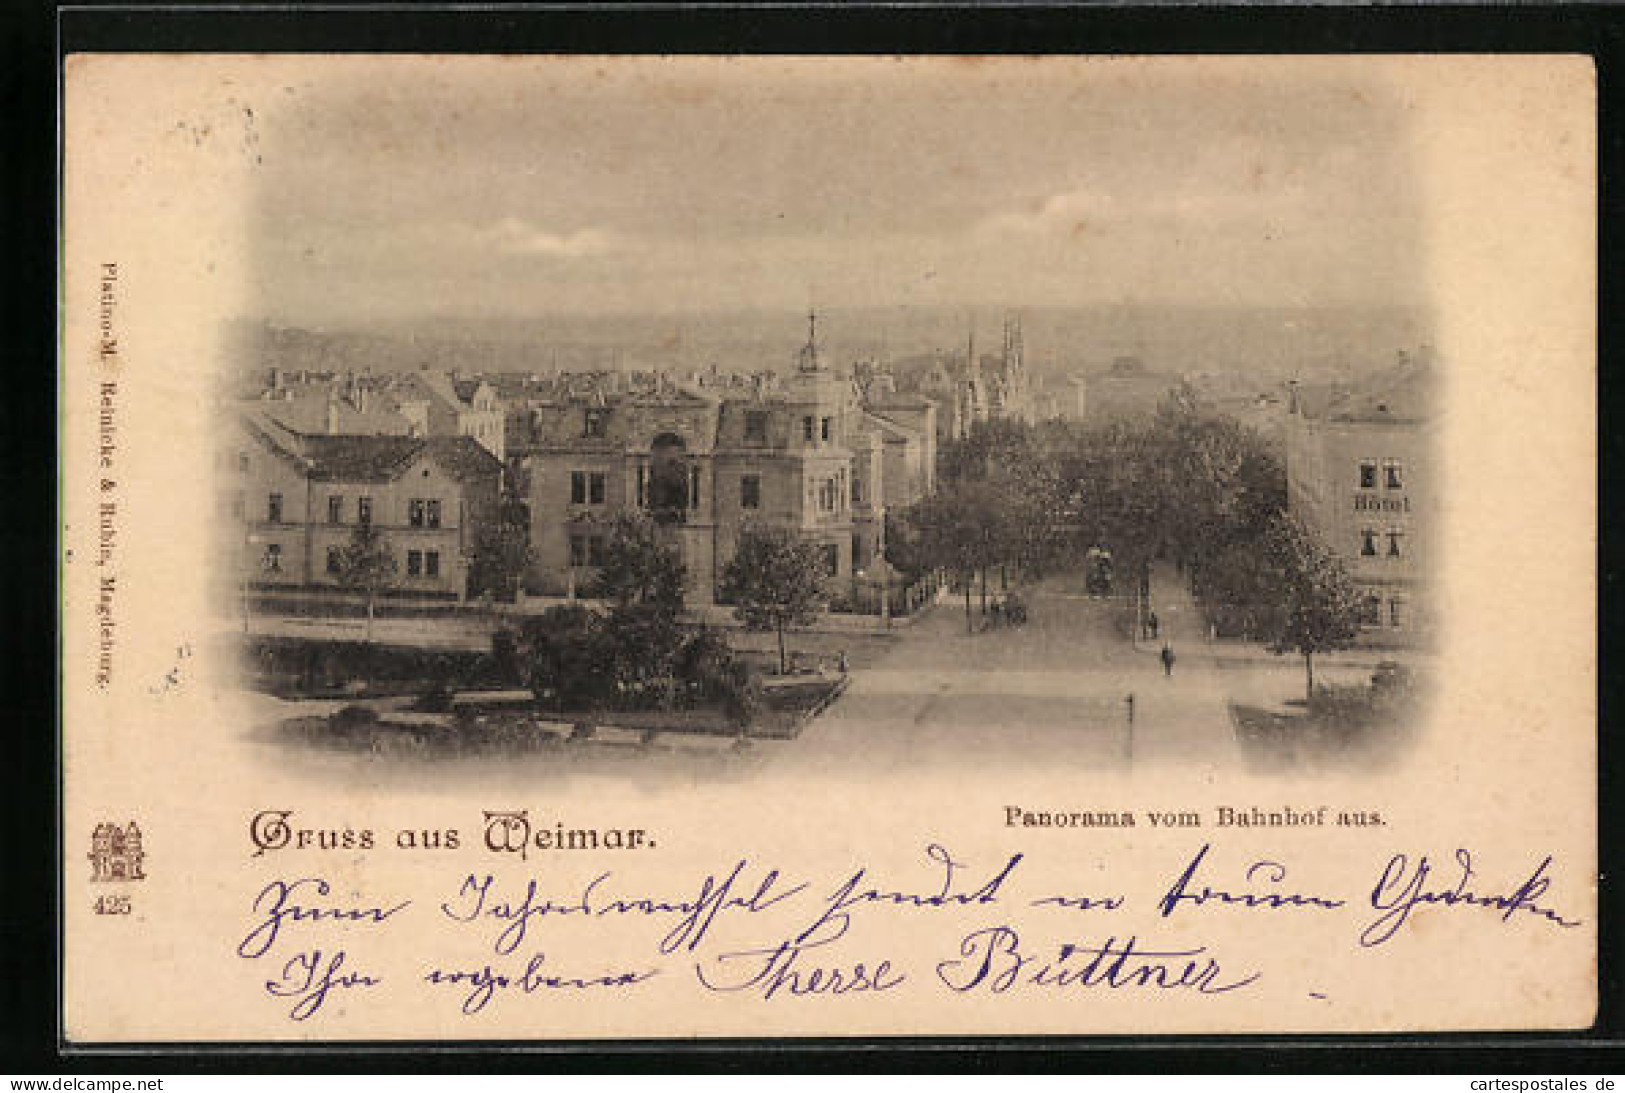 Platino-M. Reinicke & Rubin, Magdeburg.
Hôtel
425
Gruss aus Weimar.
Panorama vom Bahnhof aus.
Zum Jahreswechsel sendet in treuem Gedenken
Ihre ergebene Therese Büttner
www.delcampe.net
cartespostales de